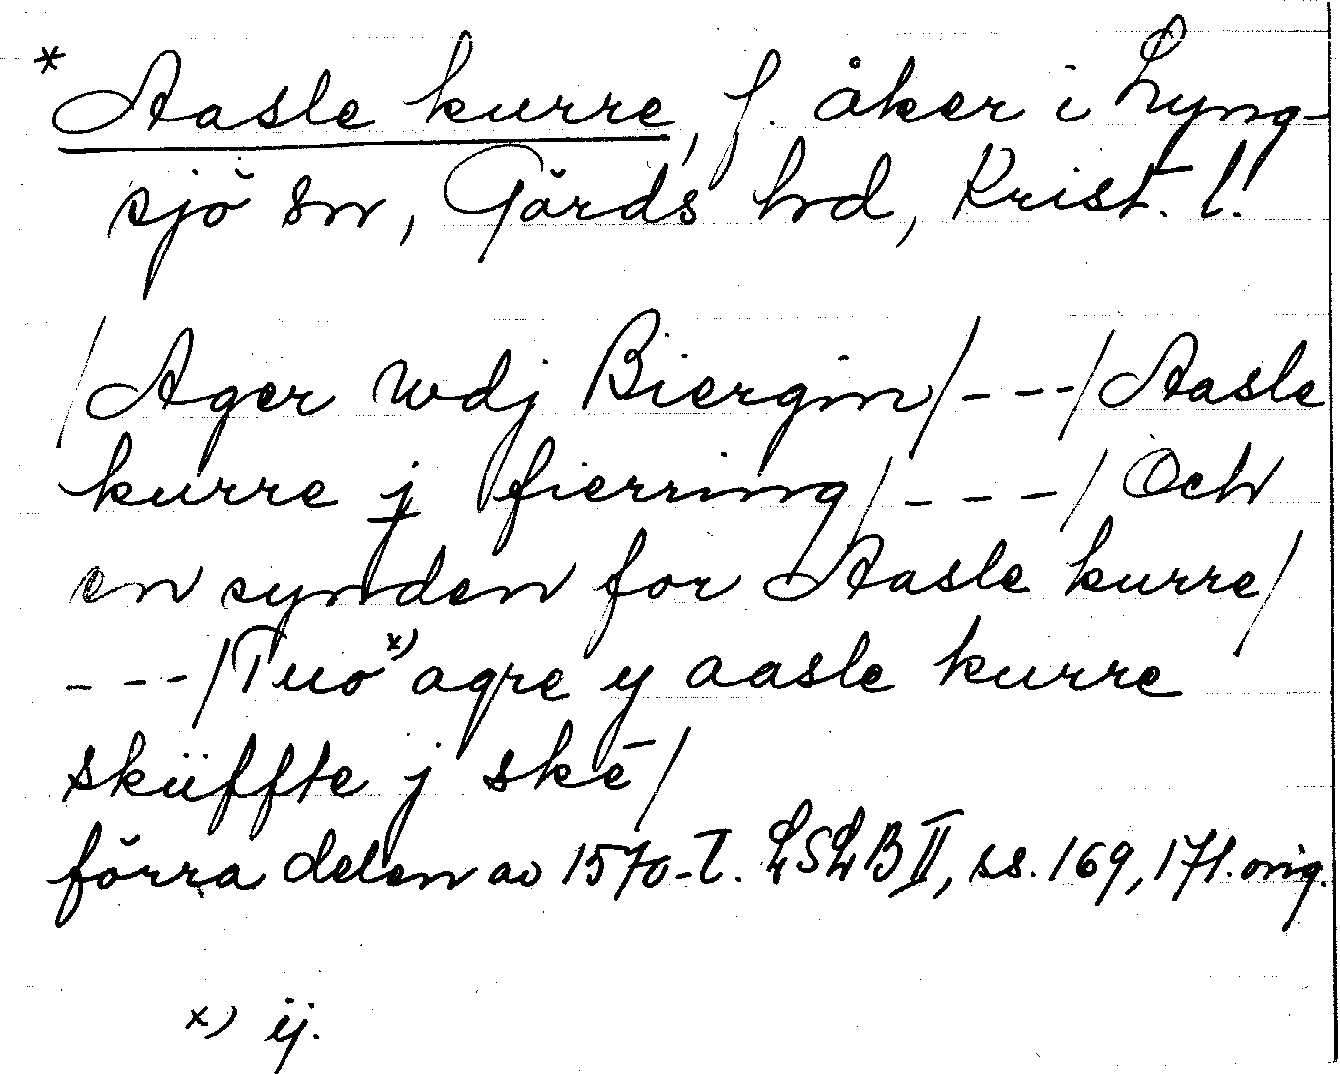 * Aasle kurre, f. åker i Lyng-
sjö sn, Gärds hd, Krist. l.
/Ager wdj Biergin/---/Aasle
kurre j fierring/---/Och
en synden for Aasle kurre/
---/Tuo x) agre y aasle kurre
sküffte j skē/
förra delen av 1570-t. LSLB II, ss. 169, 171. orig.
x) ij.